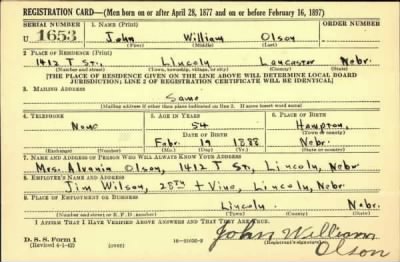 REGISTRATION CARD—(Men born on or after April 28, 1877 and on or before February 16, 1897)
SERIAL NUMBER 1. NAME (Print)
U 1653 John William Olson
(First) (Middle) (Last)
2. PLACE OF RESIDENCE (Print)
1412 T St., Lincoln Lancaster Nebr.
(Number and street) (Town, township, village, or city) (County) (State)
[THE PLACE OF RESIDENCE GIVEN ON THE LINE ABOVE WILL DETERMINE LOCAL BOARD
JURISDICTION; LINE 2 OF REGISTRATION CERTIFICATE WILL BE IDENTICAL]
3. MAILING ADDRESS
Same
[Mailing address if other than place indicated on line 2. If same insert word same]
4. TELEPHONE 5. AGE IN YEARS 6. PLACE OF BIRTH
None 54 Hampton,
DATE OF BIRTH (Town or county)
Febr. 19 1888 Nebr.
(Exchange) (Number) (Mo.) (Day) (Yr.) (State or country)
7. NAME AND ADDRESS OF PERSON WHO WILL ALWAYS KNOW YOUR ADDRESS
Mrs. Alvania Olson, 1412 T St, Lincoln, Nebr
8. EMPLOYER'S NAME AND ADDRESS
Jim Wilson, 28TH + Vine, Lincoln, Nebr.
9. PLACE OF EMPLOYMENT OR BUSINESS
Lincoln Nebr.
(Number and street or R. F. D. number) (Town) (County) (State)
I AFFIRM THAT I HAVE VERIFIED ABOVE ANSWERS AND THAT THEY ARE TRUE.
D. S. S. Form 1
(Revised 4-1-42) (over)
John William
Olson
(Registrant's signature)